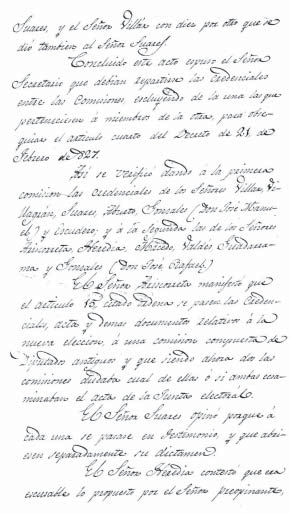 Suares, y el Señor Villar con diez por otro que se
dió tambien al Señor Suares.
Concluido este acto espuso el Señor
Secretario que debian repartirse las credenciales
entre las Comisiones, escluyendo de la una las que
pertenecieren á miembros de la otra, para obse-
quiar el articulo cuarto del Decreto de 21 de
Febrero de 827.
Asi se verificó dando á la primera
comision las credenciales de los Señores Villar, Vi-
llagran, Suares, Gonzales (Don José Manu-
el) y Escudero; y á la segunda las de los Señores
Heredia, Valdes
y Gonzales (Don José Rafael.)
El Señor manifestó que
el articulo 15 citado ordena se pasen las Creden-
ciales, acta y demas documentos relativos á la
nueva eleccion, á una comision compuesta de
Diputados antiguos y que siendo ahora dos las
comisiones dudaba cual de ellas ó si ambas exa-
minaban el acta de la Junta electorál.
El Señor Suares opinó porque á
cada una se pasase en testimonio, y que abrie-
sen separadamente su dictamen.
El Señor Heredia contestó que era
escusable lo propuesto por el Señor preopinante,